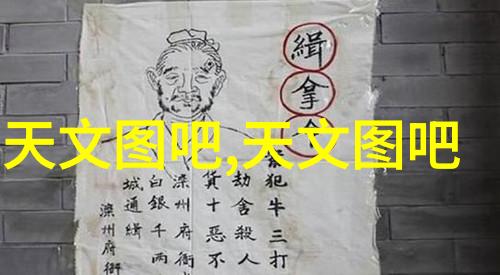 天文图吧,天文图吧
緝拿
犯牛三打
劫舍殺人
貨十惡不
滦州府衙
白銀千两
城通緝
滦州府衙